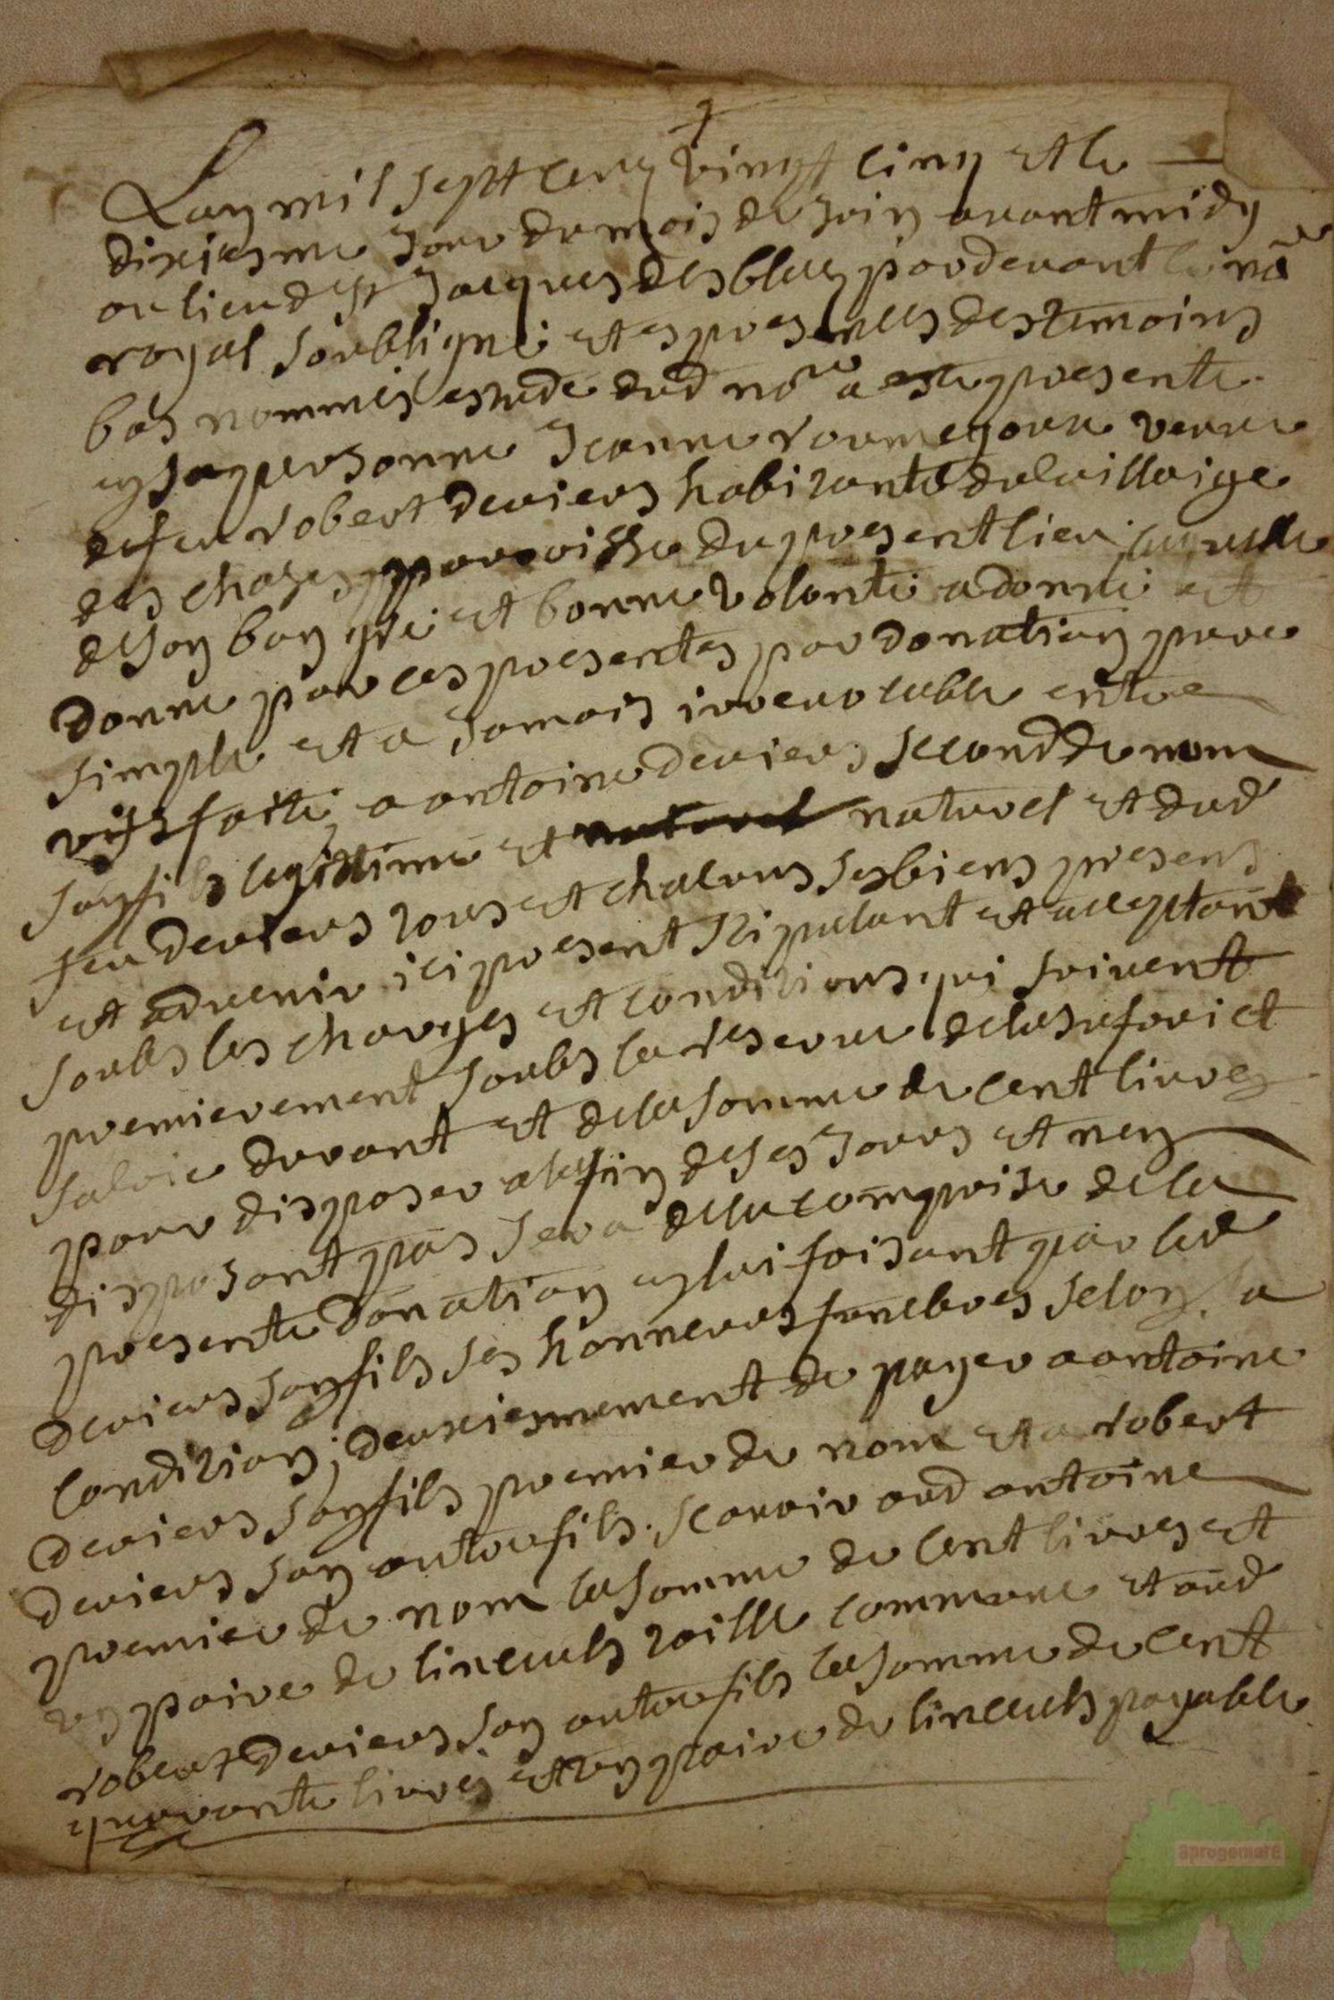 Lan mil sept cens vingt cinq et le
dixiesme jour du mois de juin avant midy
au lieu de St Jacques des bleus par devant le nore
royal soubsigné et es presences des temoins
bas nommés estude dud nore a esté presente
en sa personne Jeanne roumegoux veuve
de feu robert deviers habitante du village
des chazes parroisse du present lieu laquelle
de son bon gré et bonne volonté a donné et
donne par ces presentes par donation pure
simple et a jamais irrevocable entre
vifs faite a antoine deviers second de nom
son fils legittime et naturel et dud
feu deviers tous et chacuns ses biens presens
et advenir ici present stipulant et acceptant
soubs les charges et conditions qui suivent
premierement soubs la reserve de l'usufruict
sa vie durant et de la somme de cent livres
pour disposer a la fin de ses jours et n'en
disposant pas sera de la comprise de la
presente donation en lui faisant par led
deviers son fils ses honneurs funebres selon sa
condition, deuxiesmement de payer a antoine
deviers son fils premier de nom et a robert
deviers son autre fils. scavoir aud antoine
premier de nom la somme de cent livres et
un paire de linceuls toille commune et aud
robert deviers son autre fils la somme de cent
quarante livres et un paire de linceuls payable
aprogemere